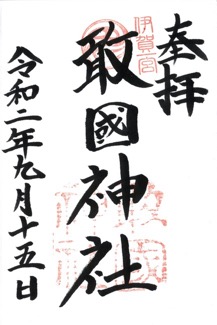 奉拝
伊賀一宮
敢國神社
令和二年九月十五日